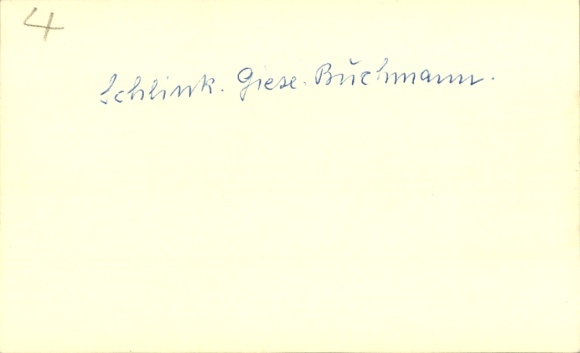 4
Schlink. Giese. Buchmann.